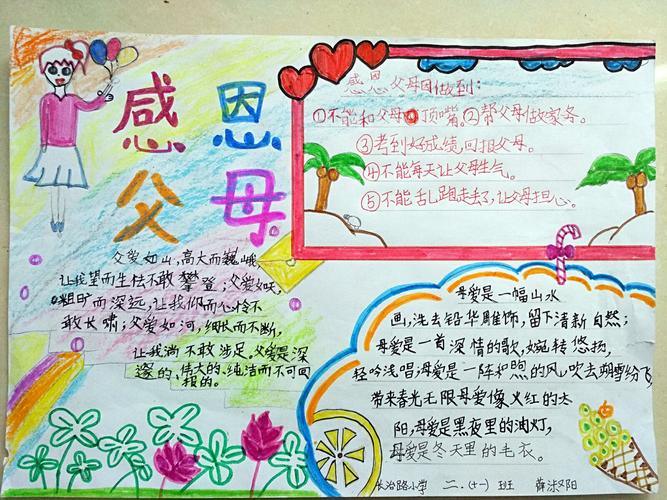 感恩
父母
感恩父母因做到:
①不能和父母顶嘴。②帮父母做家务。
③考到好成绩,回报父母。
④不能每天让父母生气。
⑤不能乱跑走丢了,让父母担心。
父爱如山,高大而巍峨,
让我望而生怯不敢攀登;父爱如天,
粗旷而深远,让我仰而心怜不
敢长啸;父爱如河,细长而不断,
让我淌不敢涉足。父爱是深
邃的、伟大的、纯洁而不可回
报的。
母爱是一幅山水
画,洗去铅华雕饰,留下清新自然;
母爱是一首深情的歌,婉转悠扬,
轻吟浅唱;母爱是一阵和煦的风,吹去朔雪纷飞
带来春光无限母爱像火红的太
阳,母爱是黑夜里的油灯,
母爱是冬天里的毛衣。
长治路小学 二.(十一) 班 薛沐阳